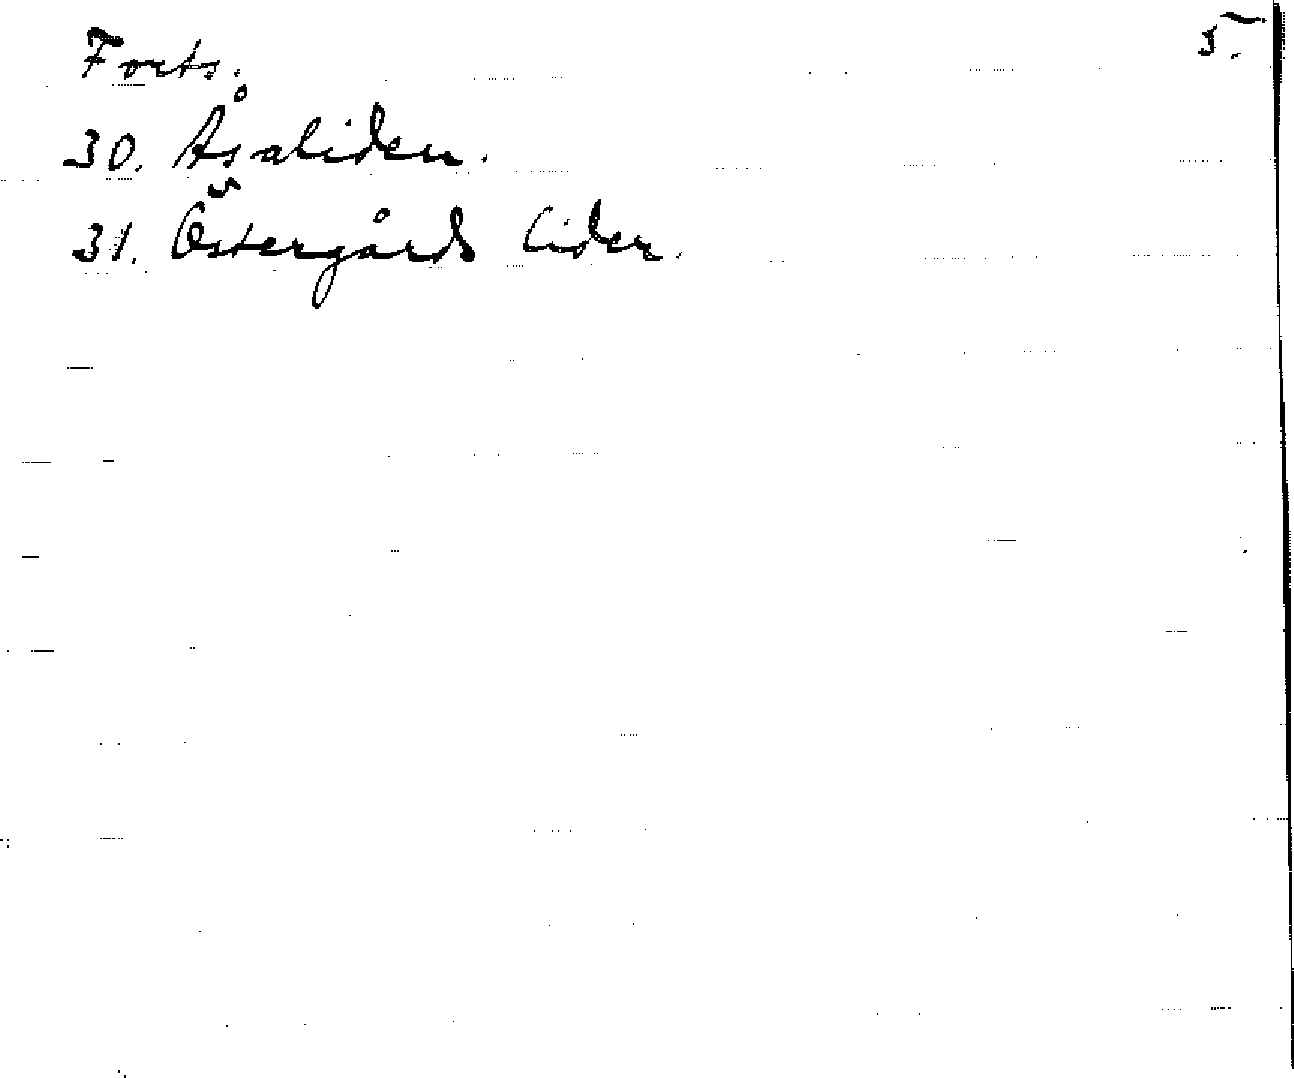 Forts. 5.
30. Åsaliden.
31. Östergårds liden.